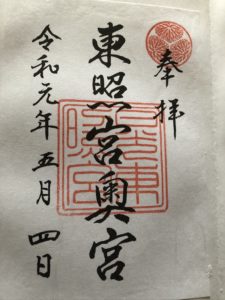 奉拝
東照宮奥宮
令和元年五月四日